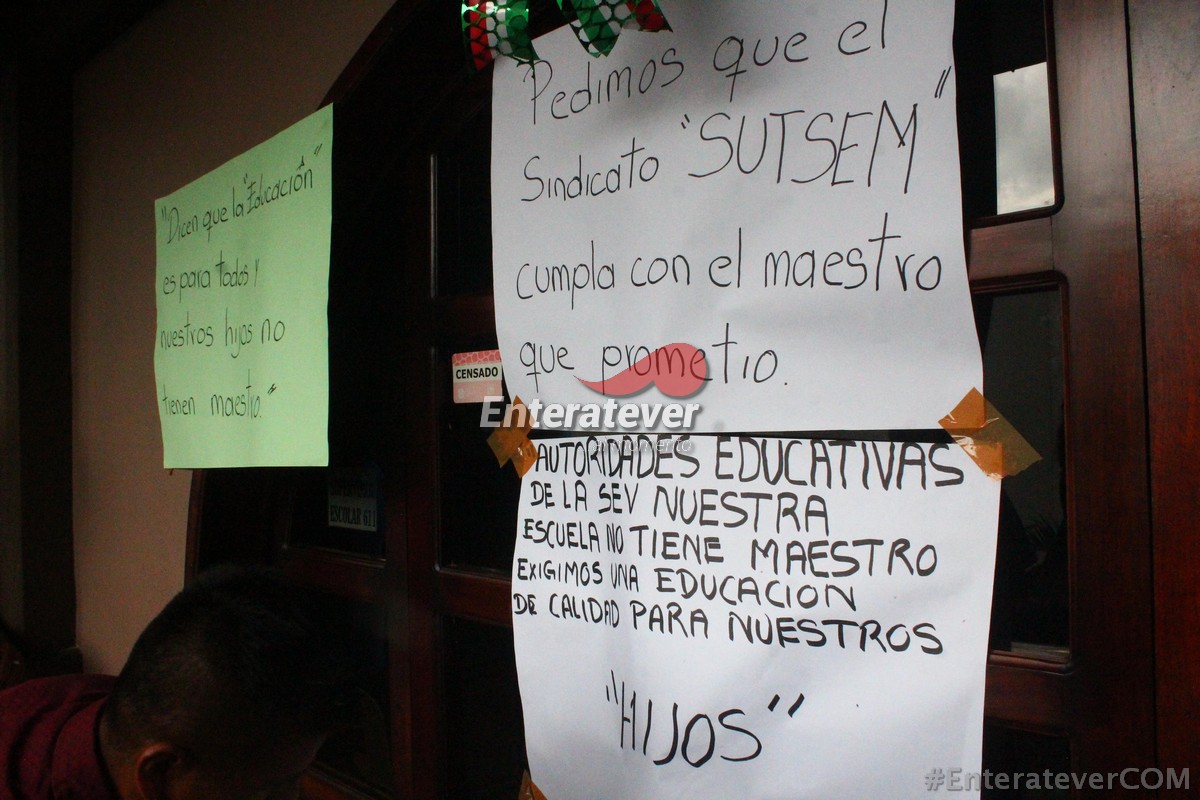 "Dicen que la "Educación"
es para todos y
nuestros hijos no
tienen maestro."
Pedimos que el
Sindicato "SUTSEM"
cumpla con el maestro
que prometio.
CENSADO
Enteratever
al momento
AUTORIDADES EDUCATIVAS
DE LA SEV NUESTRA
ESCUELA NO TIENE MAESTRO
EXIGIMOS UNA EDUCACION
DE CALIDAD PARA NUESTROS
"HIJOS"
ESCOLAR 611
#EnterateverCOM